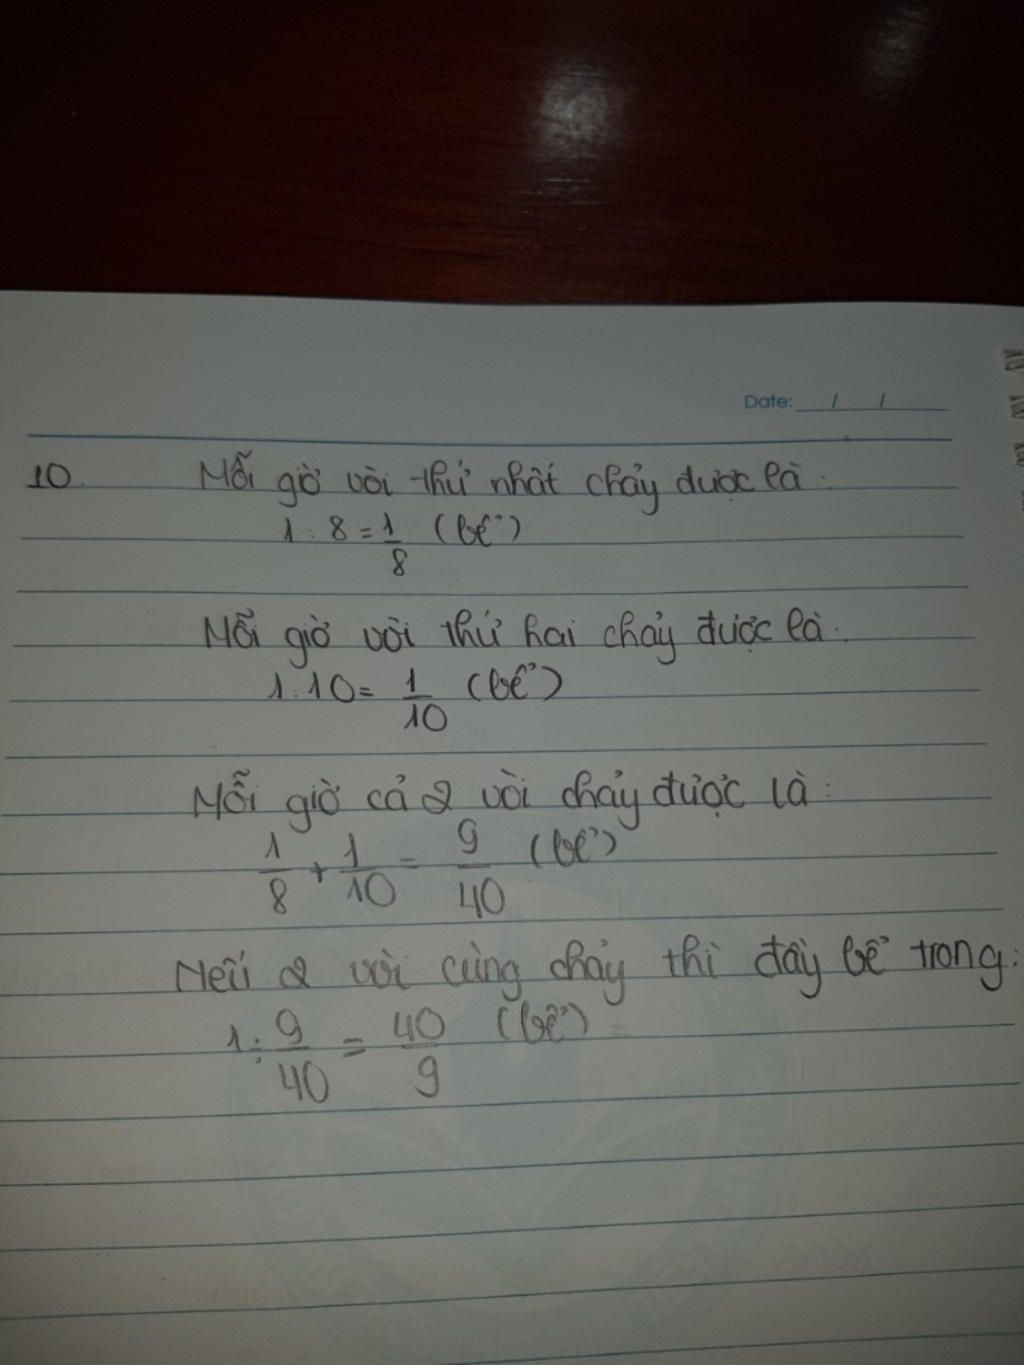 Date: / /
10. Mỗi giờ vòi thứ nhất chảy được là:
1 : 8 = 1/8 (bể)
Mỗi giờ vòi thứ hai chảy được là:
1 : 10 = 1/10 (bể)
Mỗi giờ cả 2 vòi chảy được là:
1/8 + 1/10 = 9/40 (bể)
Nếu 2 vòi cùng chảy thì đầy bể trong:
1 : 9/40 = 40/9 (bể)